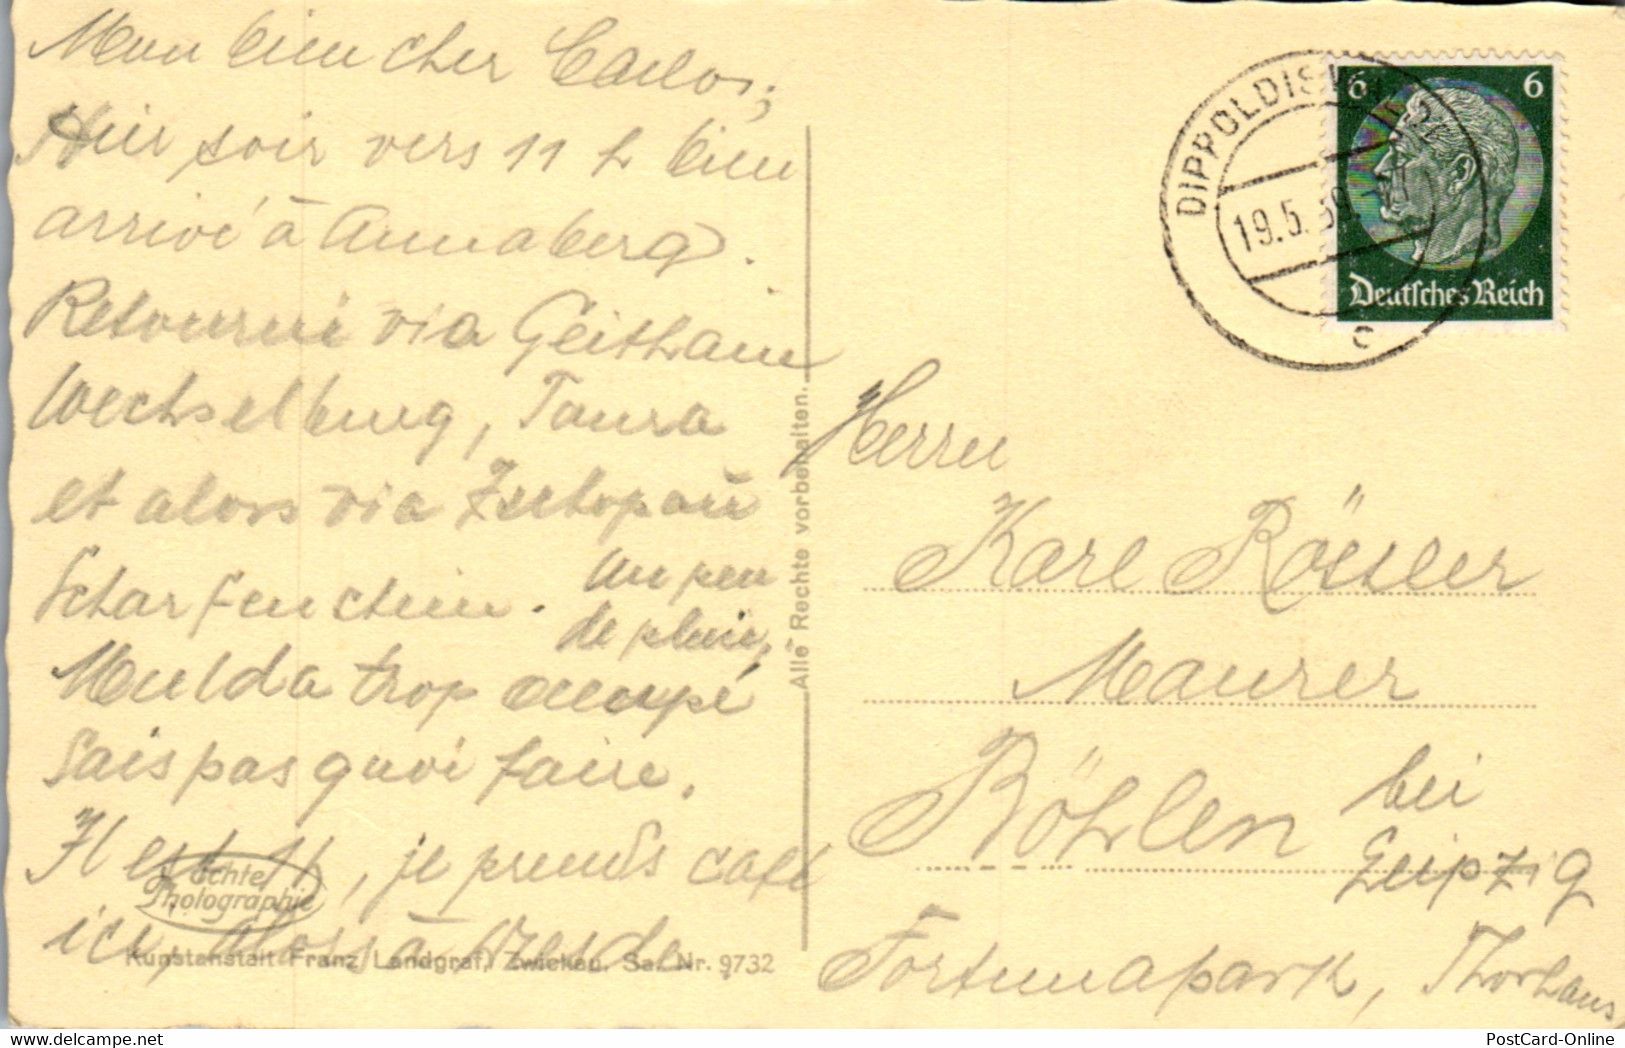 Mon bien cher Carlos;
Hier soir vers 11 h bien
arrivé à Annaberg.
Retourné via Geithain
Wechselburg, Taura
et alors via Zschopau
Scharfenstein. Un peu
de pluie,
Mulda trop occupé
Sais pas quoi faire.
Il est 11, je prends café
ici, alors à
Echte
Photographie
Kunstanstalt Franz Landgraf, Zwickau, Sa. Nr. 9732
Alle Rechte vorbehalten.
DIPPOLDISWALDE
19.5.39
c
6 6
Deutsches Reich
Herrn
Karl Rössler
Maurer
Böhlen bei
Leipzig
Fortunapark, Thorhaus
PostCard-Online